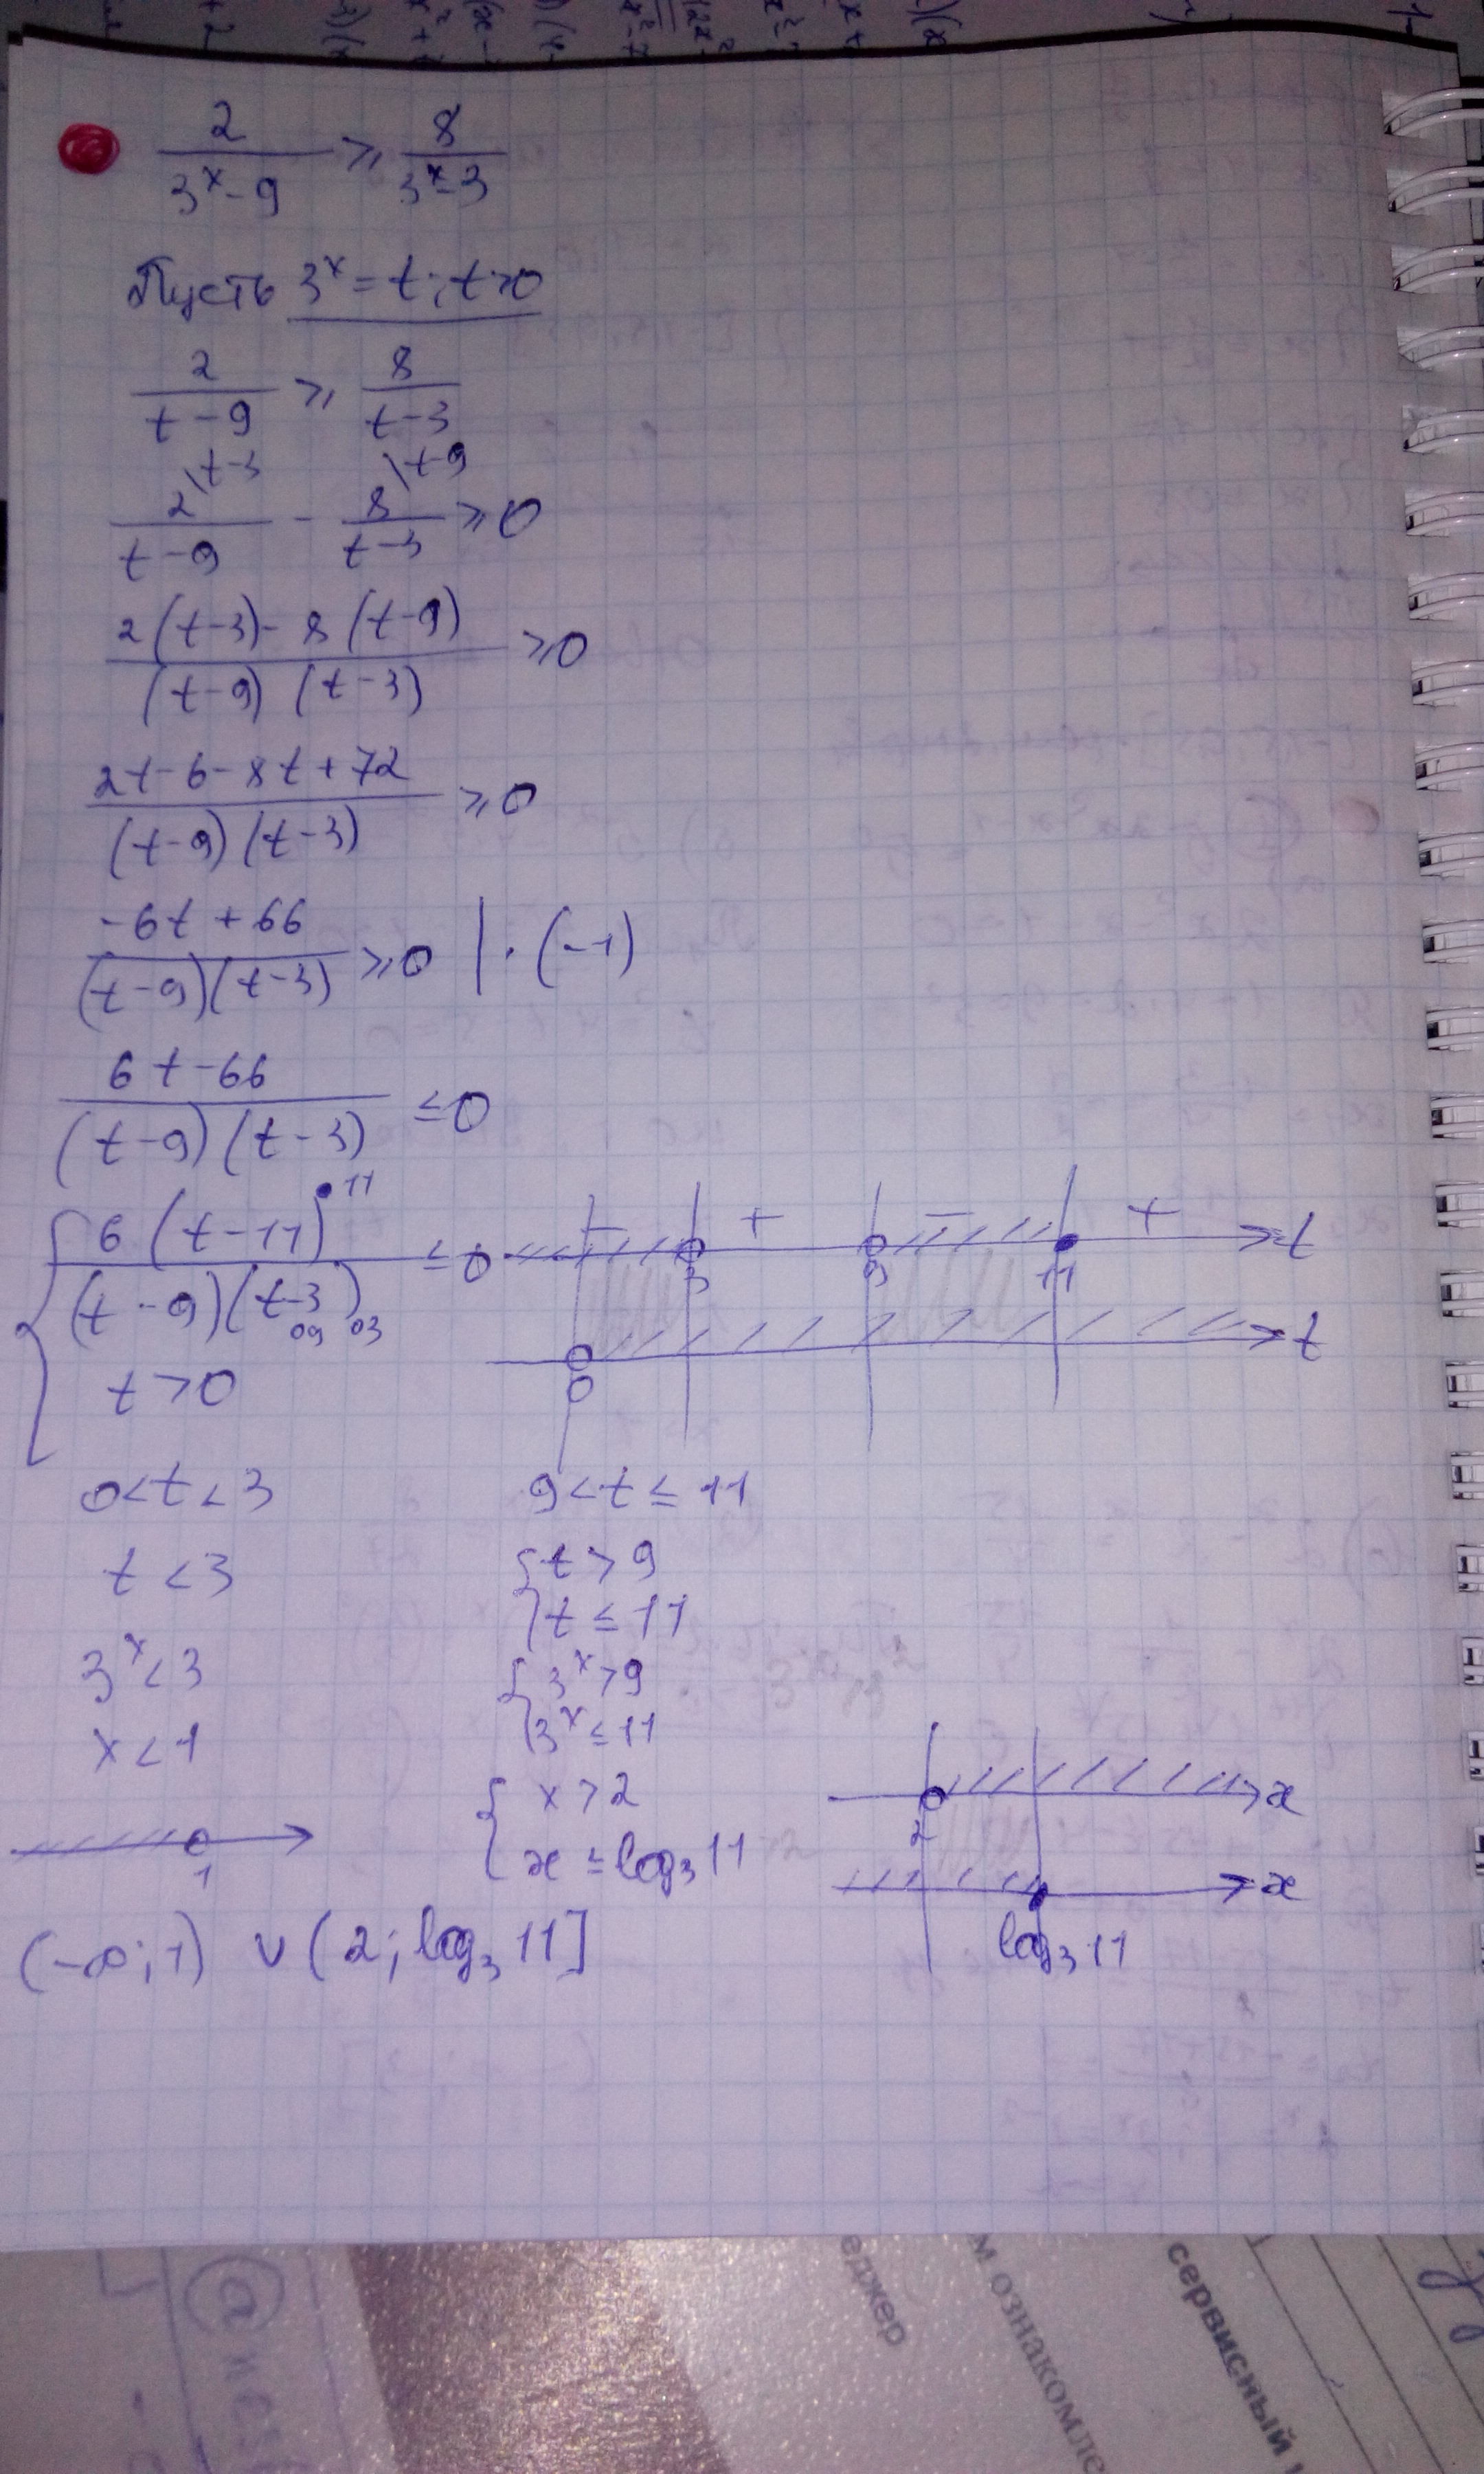 2/(3^x - 9) ≥ 8/(3^x - 3)
Пусть 3^x = t; t>0
2/(t-9) ≥ 8/(t-3)
2\t-3/(t-9) - 8\t-9/(t-3) ≥ 0
(2(t-3) - 8(t-9))/((t-9)(t-3)) ≥ 0
(2t-6-8t+72)/((t-9)(t-3)) ≥ 0
(-6t+66)/((t-9)(t-3)) ≥ 0 | · (-1)
(6t-66)/((t-9)(t-3)) ≤ 0
{ 6(t-11) •11/((t-9)(t-3)) ≤ 0
o9 o3
t > 0
- + - +
3 9 11 t
0 t
0<t<3
t<3
3^x<3
x<1
1
9<t≤11
{ t>9
t≤11
{ 3^x>9
3^x≤11
{ x>2
x≤log₃11
2 x
log₃11 x
(-∞;1) ∪ (2; log₃11]
еджер
м ознакомле
сервисный